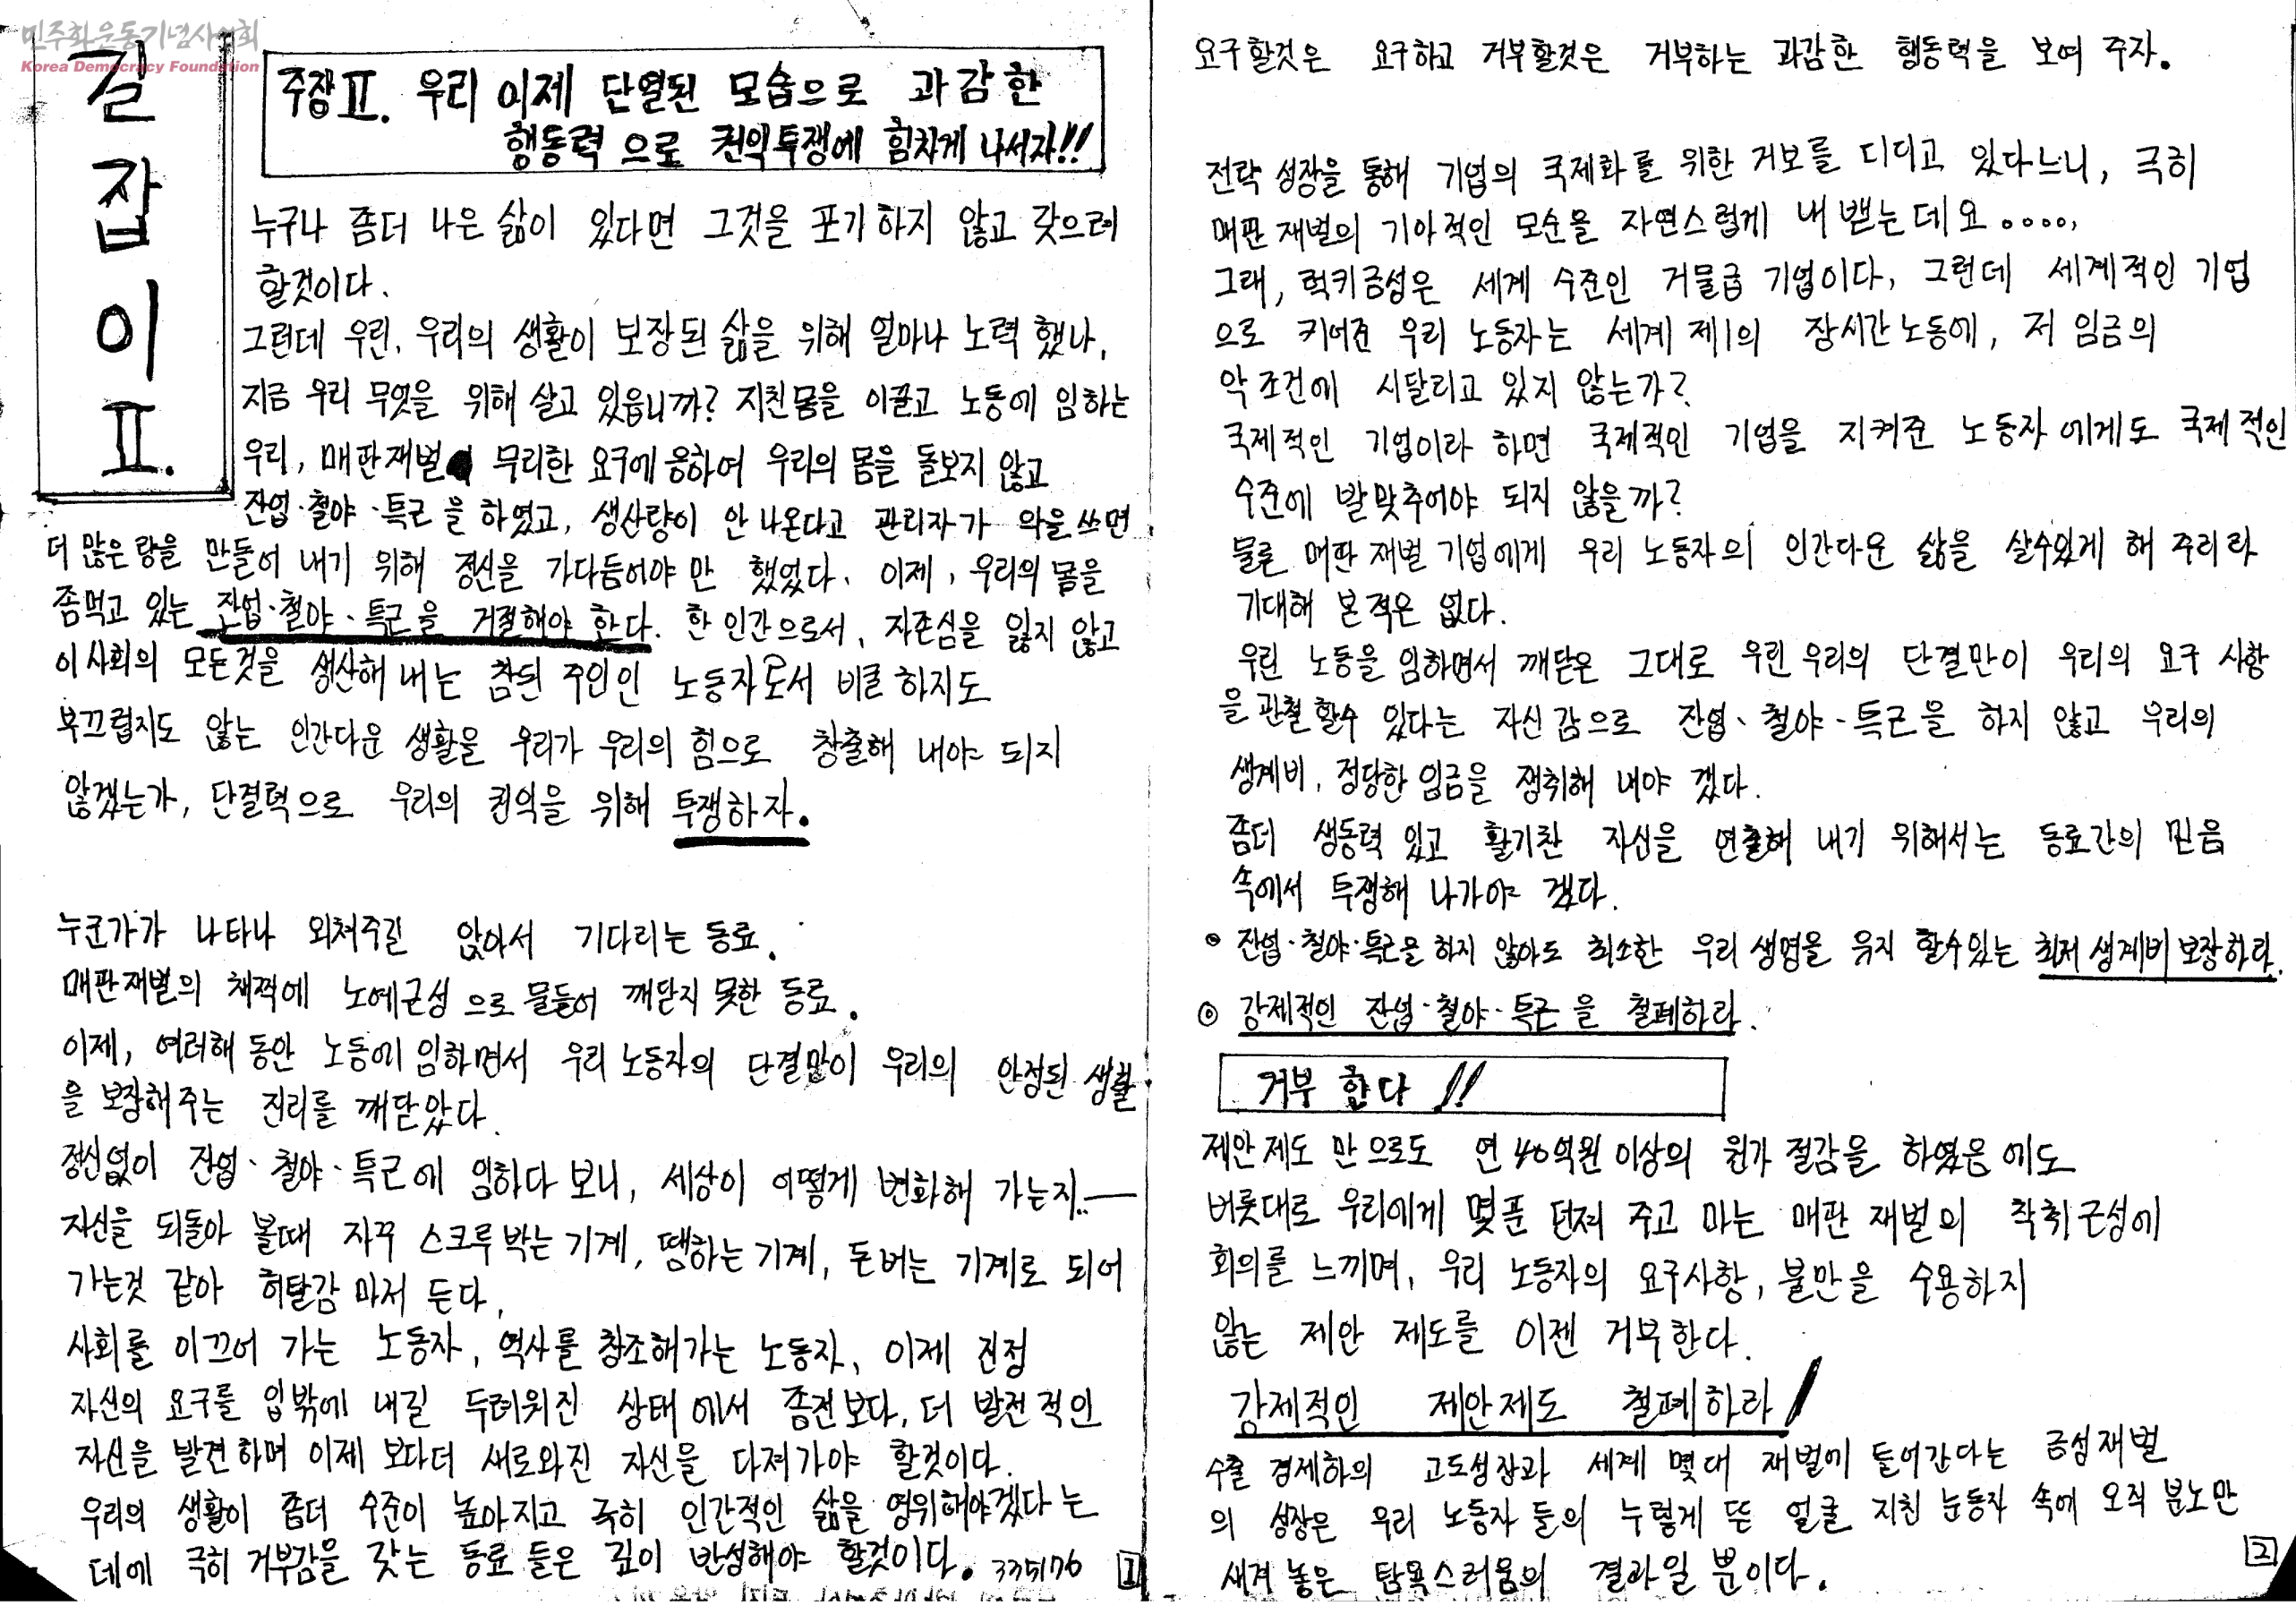 민주화운동기념사업회
Korea Democracy Foundation
길잡이 Ⅱ.
주장Ⅱ. 우리 이제 단열된 모습으로 과감한
행동력 으로 권익투쟁에 힘차게 나서자!!
누구나 좀더 나은 삶이 있다면 그것을 포기 하지 않고 갖으려
할것이다.
그런데 우린, 우리의 생활이 보장된 삶을 위해 얼마나 노력 했나,
지금 우리 무엇을 위해 살고 있읍니까? 지친몸을 이끌고 노동에 임하는
우리, 매판재벌 무리한 요구에 응하여 우리의 몸을 돌보지 않고
잔업·철야·특근을 하였고, 생산량이 안나온다고 관리자가 악을 쓰면
더 많은 량을 만들어 내기 위해 정신을 가다듬어야만 했었다. 이제, 우리의 몸을
좀먹고 있는 잔업·철야·특근을 거절해야 한다. 한 인간으로서, 자존심을 잃지 않고
이 사회의 모든것을 생산해 내는 참된 주인인 노동자로서 비굴 하지도
부끄럽지도 않는 인간다운 생활을 우리가 우리의 힘으로 창출해 내야 되지
않겠는가, 단결력으로 우리의 권익을 위해 투쟁하자.
누군가가 나타나 외쳐주길 앉아서 기다리는 동료.
매판재벌의 채찍에 노예근성으로 물들어 깨닫지 못한 동료.
이제, 여러해 동안 노동에 임하면서 우리 노동자의 단결만이 우리의 안정된 생활
을 보장해주는 진리를 깨닫았다.
정신없이 잔업·철야·특근에 임하다 보니, 세상이 어떻게 변화해 가는지..—
자신을 되돌아 볼때 자꾸 스크루 박는 기계, 땜하는 기계, 돈버는 기계로 되어
가는것 같아 허탈감 마저 든다.
사회를 이끄어 가는 노동자, 역사를 창조해가는 노동자, 이제 진정
자신의 요구를 입밖에 내길 두려워진 상태에서 좀전보다, 더 발전적인
자신을 발견하며 이제 보다더 새로와진 자신을 다져가야 할것이다.
우리의 생활이 좀더 수준이 높아지고 극히 인간적인 삶을 영위해야겠다 는
데에 극히 거부감을 갖는 동료 들은 깊이 반성해야 할것이다. 335176 1
요구할것은 요구하고 거부할것은 거부하는 과감한 행동력을 보여 주자.
전략 성장을 통해 기업의 국제화를 위한 거보를 디디고 있다느니, 극히
매판 재벌의 기아적인 모순을 자연스럽게 내뱉는데요....,
그래, 럭키금성은 세계 수준인 거물급 기업이다, 그런데 세계적인 기업
으로 키어준 우리 노동자는 세계 제1의 장시간노동에, 저 임금의
악조건에 시달리고 있지 않는가?
국제적인 기업이라 하면 국제적인 기업을 지켜준 노동자에게도 국제적인
수준에 발맞추어야 되지 않을까?
물론 매판 재벌 기업에게 우리 노동자의 인간다운 삶을 살수있게 해 주리라
기대해 본적은 없다.
우린 노동을 임하면서 깨닫은 그대로 우린 우리의 단결만이 우리의 요구 사항
을 관철 할수 있다는 자신감으로 잔업·철야·특근을 하지 않고 우리의
생계비, 정당한 임금을 쟁취해 내야 겠다.
좀더 생동력 있고 활기찬 자신을 연출해 내기 위해서는 동료간의 믿음
속에서 투쟁해 나가야 겠다.
◎ 잔업·철야·특근을 하지 않아도 최소한 우리 생명을 유지 할수있는 최저 생계비 보장하라.
◎ 강제적인 잔업·철야·특근을 철폐하라.
거부 한다 !!
제안 제도 만으로도 연 40억원 이상의 원가 절감을 하였음에도
버릇대로 우리에게 몇푼 던져 주고 마는 매판 재벌의 착취근성에
회의를 느끼며, 우리 노동자의 요구사항, 불만을 수용하지
않는 제안 제도를 이젠 거부한다.
강제적인 제안제도 철폐하라!
수출 경제하의 고도성장과 세계 몇대 재벌에 들어간다는 금성재벌
의 성장은 우리 노동자 들의 누렇게 뜬 얼굴 지친 눈동자 속에 오직 분노만
새겨 놓은 탐욕스러움의 결과일 뿐이다.
2